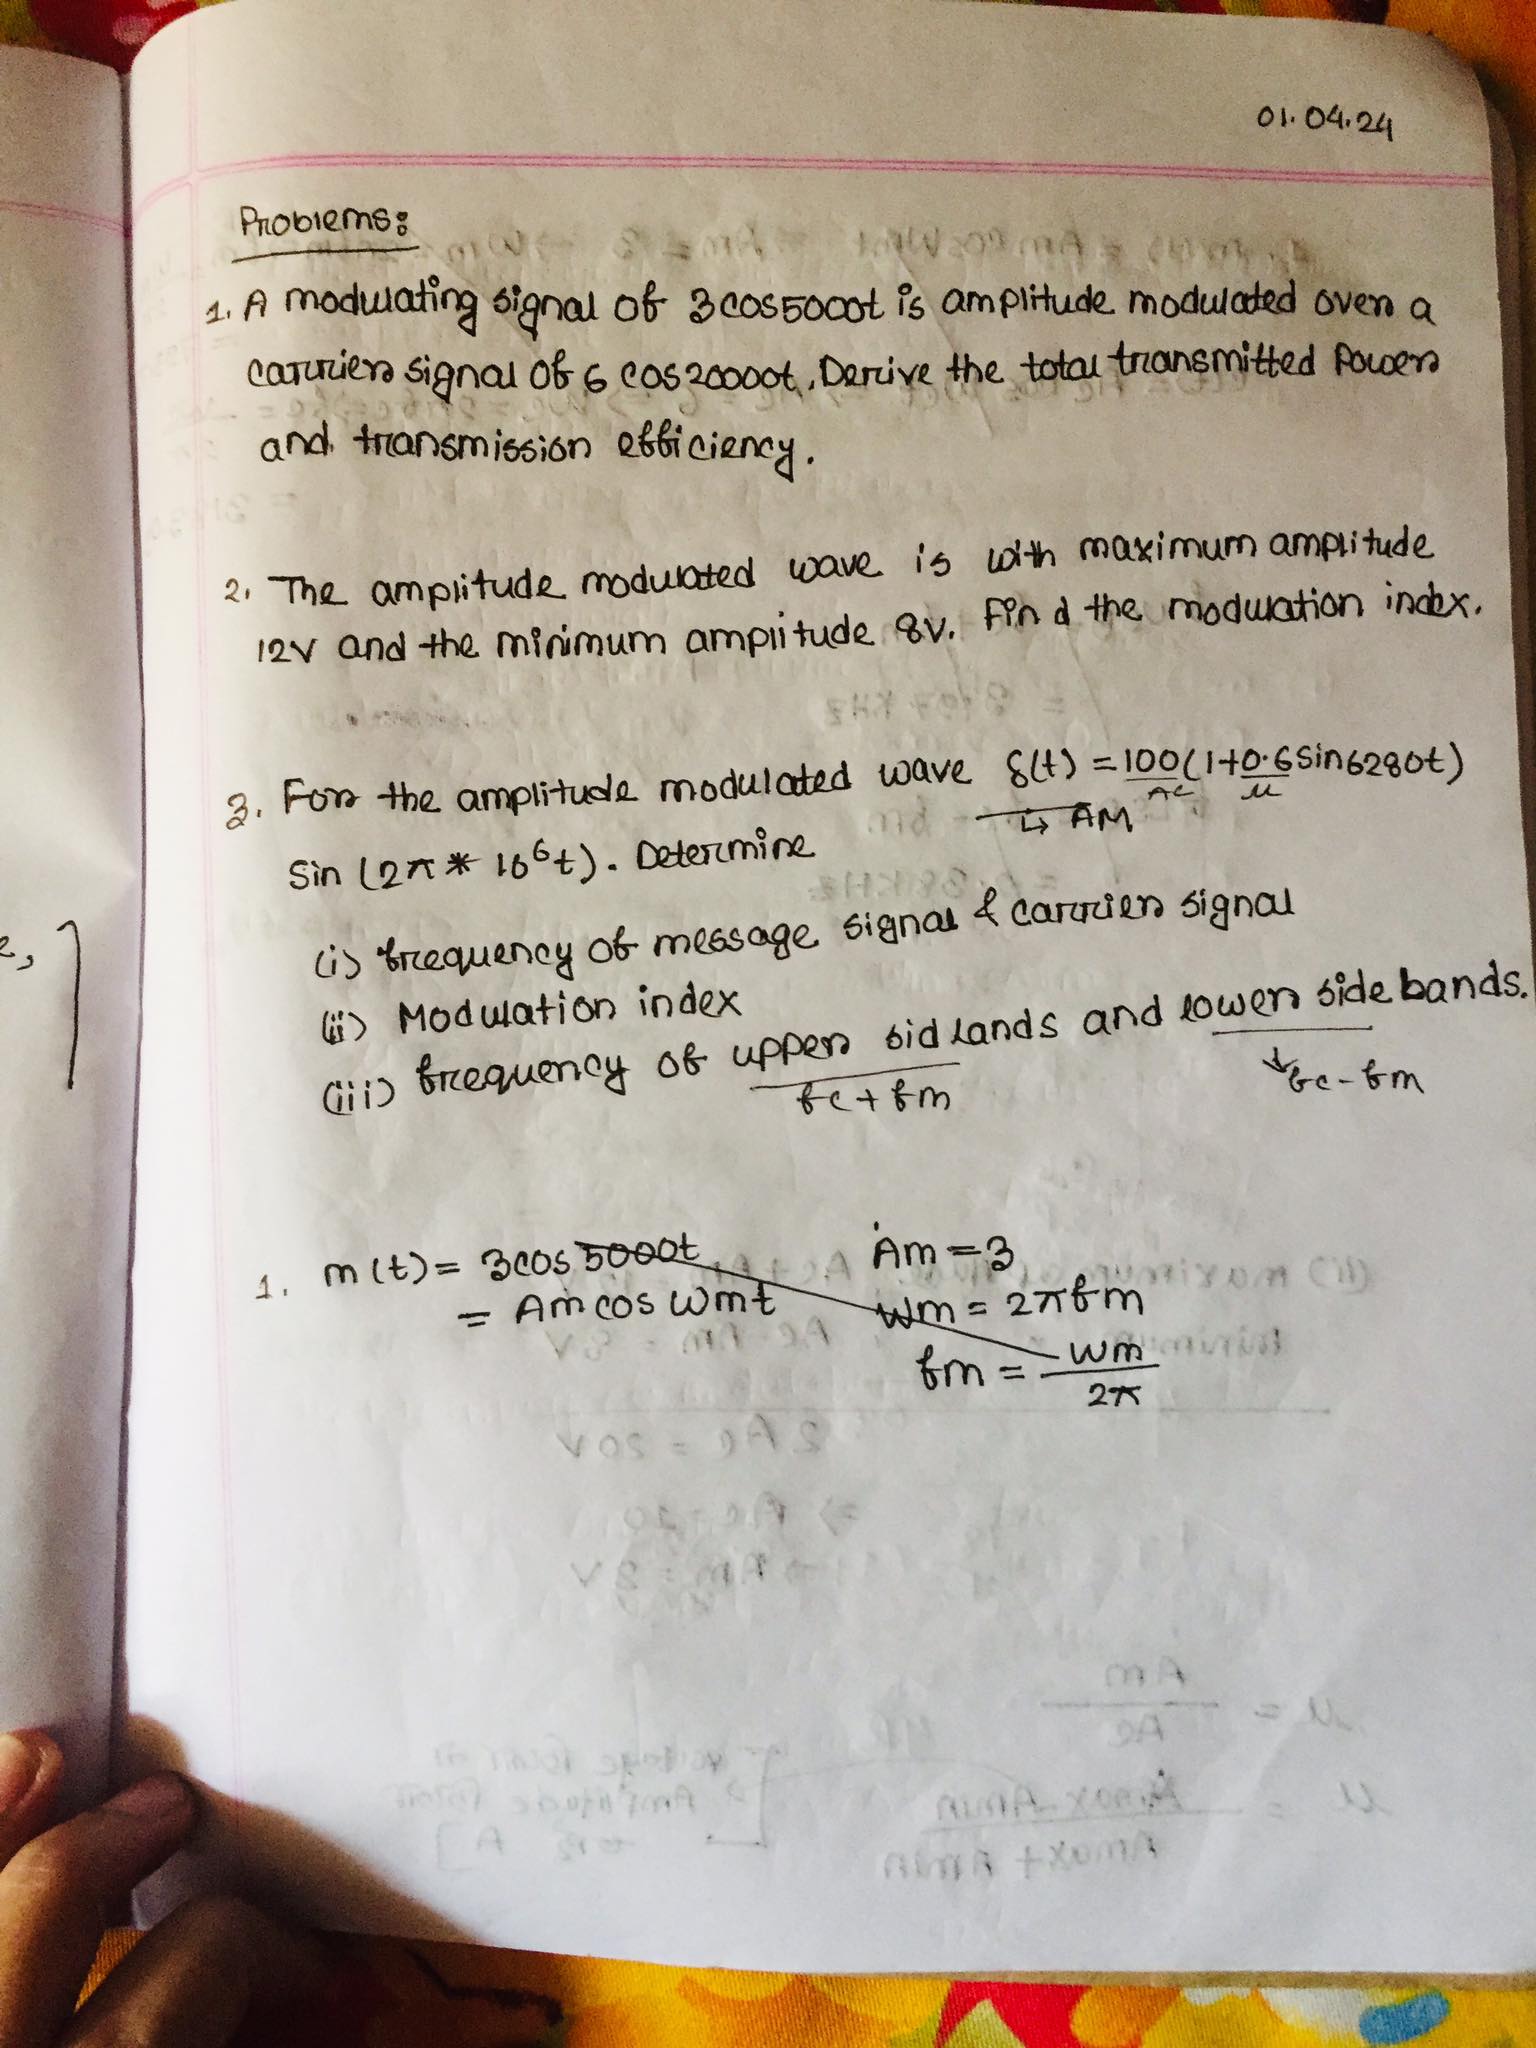 01.04.24
Problems:
1. A modulating signal of 3cos5000t is amplitude modulated over a
carrier signal of 6 cos20000t. Derive the total transmitted Power
and transmission efficiency.
2. The amplitude modulated wave is with maximum amplitude
12V and the minimum amplitude 8V. Find the modulation index.
3. For the amplitude modulated wave s(t) = 100(1+0.6sin6280t)
↳ AM Ac μ
Sin (2π * 10⁶t). Determine
(i) frequency of message signal & carrier signal
(ii) Modulation index
(iii) frequency of upper sidlands and lower side bands.
fc + fm ↓ fc - fm
1. m(t) = 3cos 5000t Am = 3
= Am cos Wmt Wm = 2πfm
fm = Wm / 2π